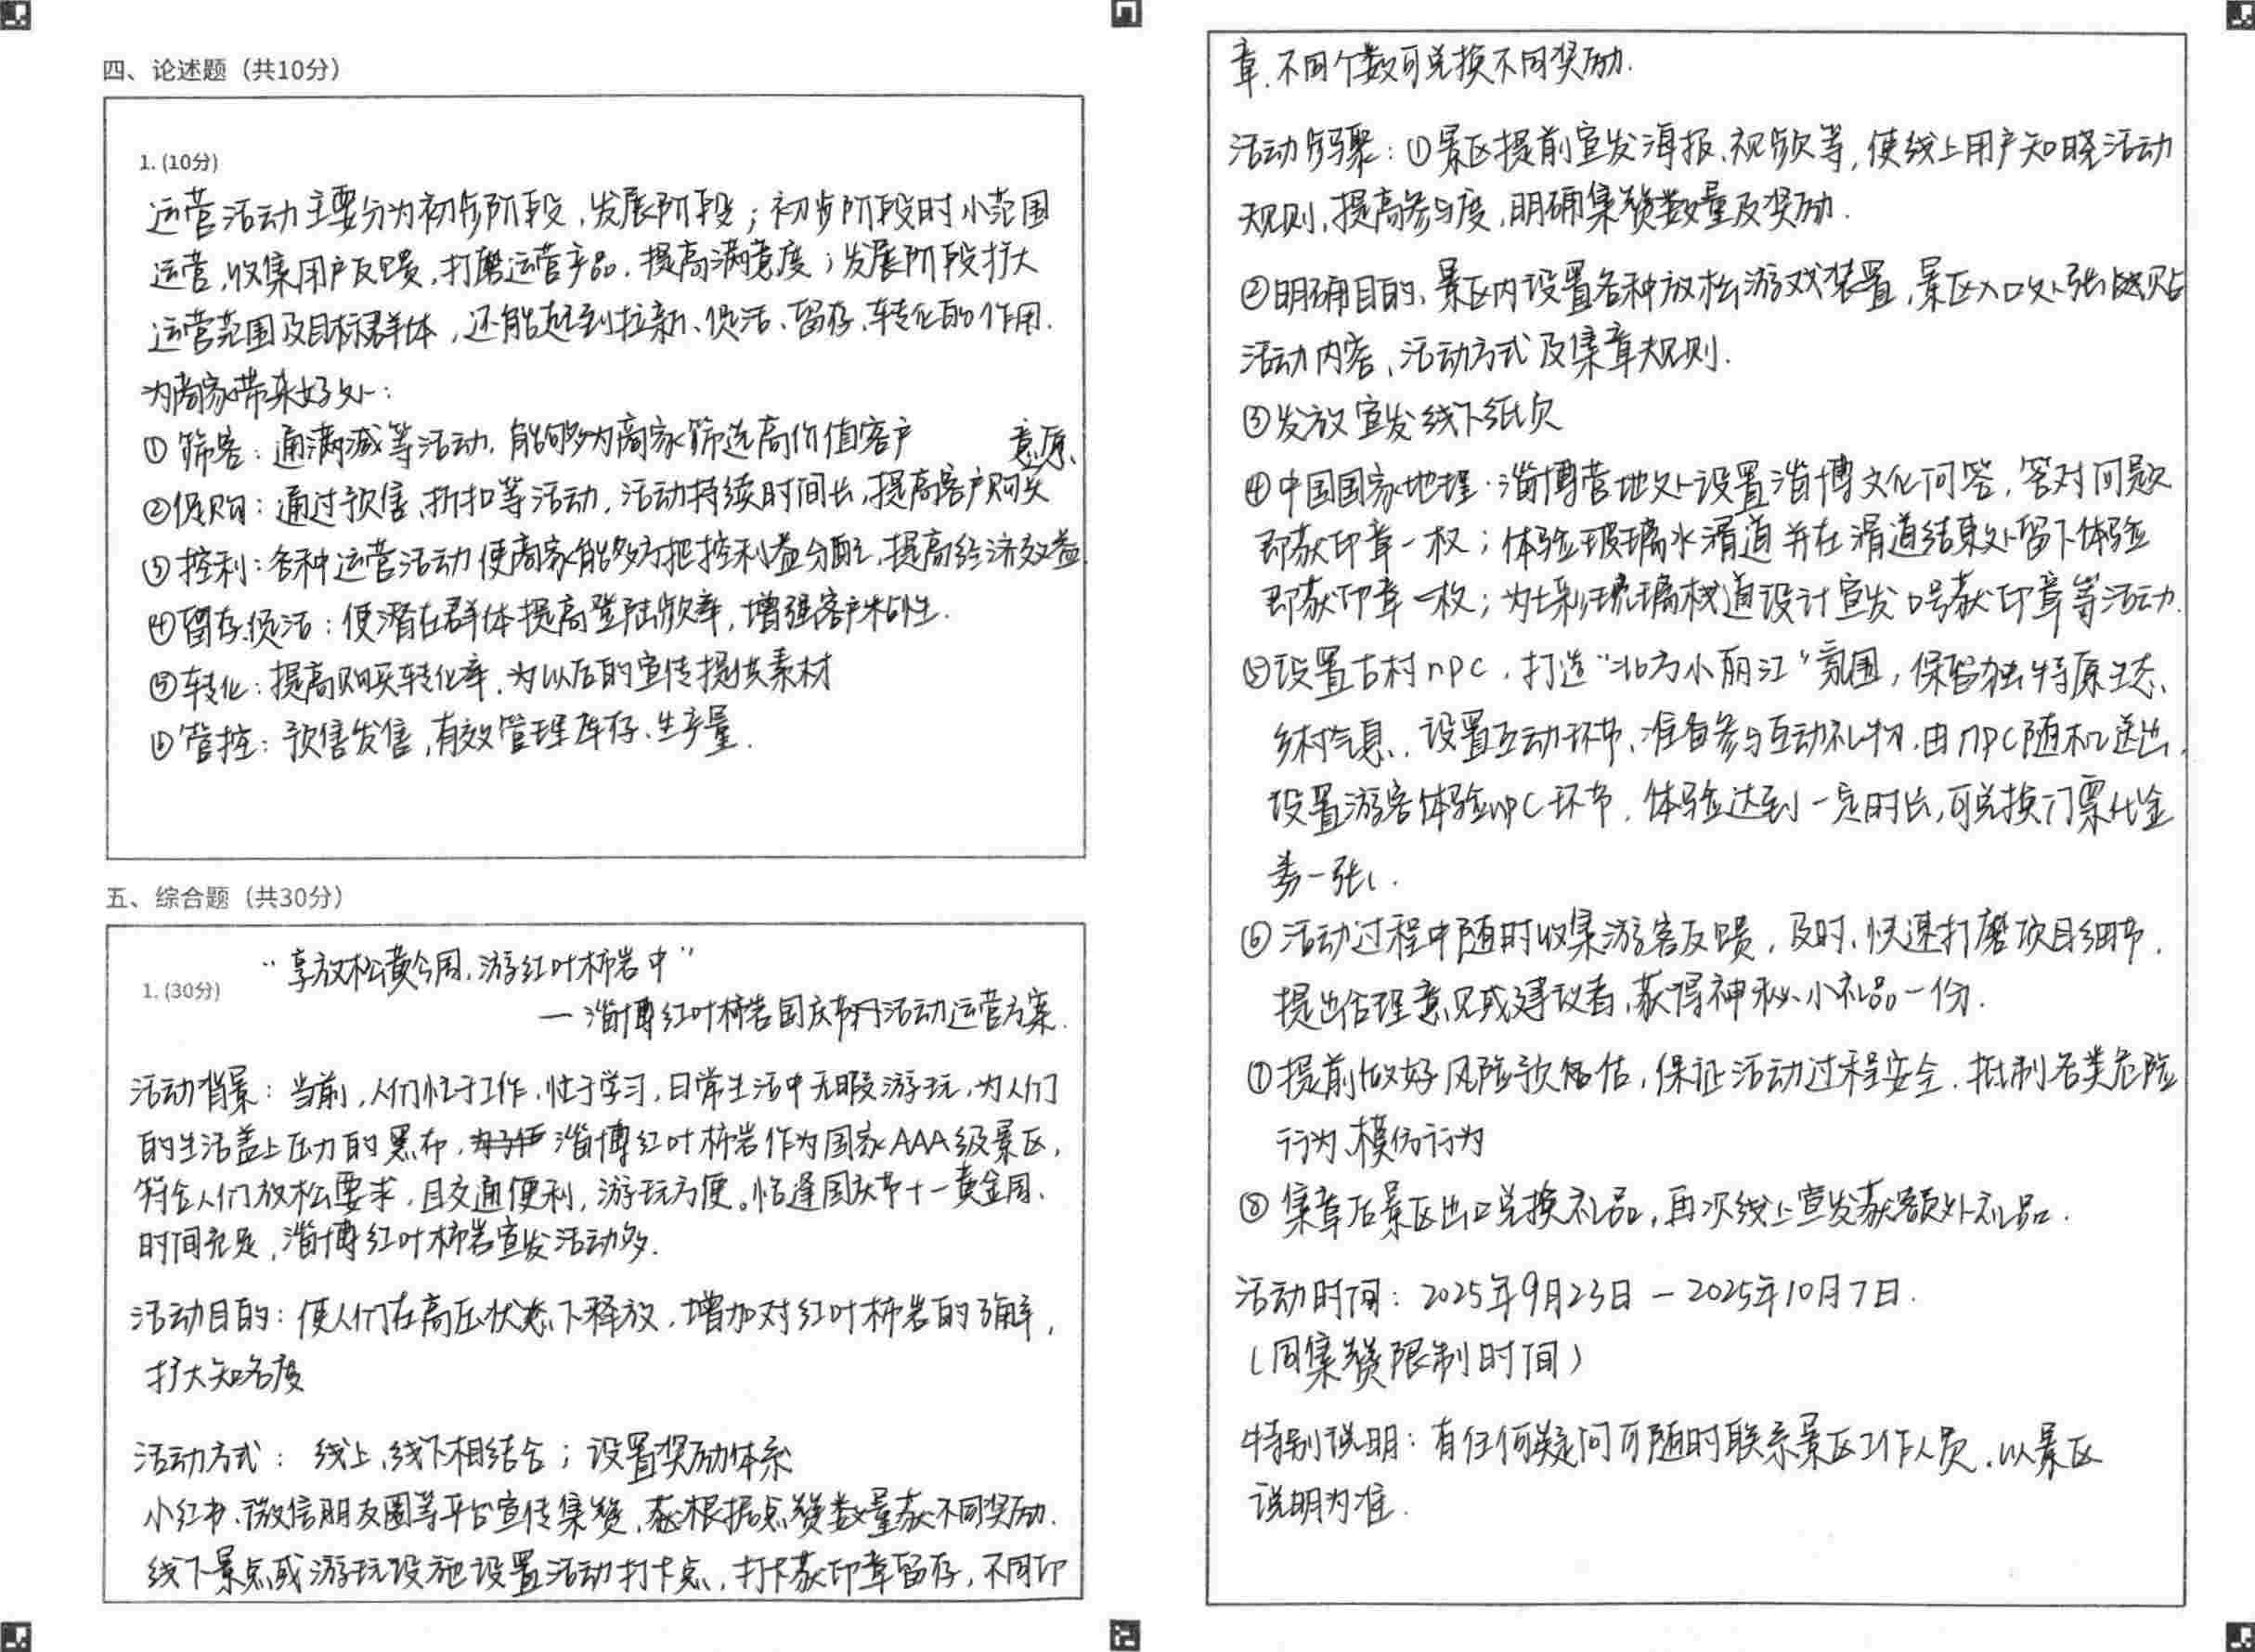 四、论述题（共10分）
1.(10分)
运营活动主要分为初步阶段，发展阶段；初步阶段时小范围
运营，收集用户反馈，打磨运营产品，提高满意度；发展阶段扩大
运营范围及目标群体，还能起到拉新、促活、留存、转化的作用.
为商家带来好处：
①筛客：通满减等活动，能够为商家筛选高价值客户
②促购：通过预售、折扣等活动，活动持续时间长，提高客户购买意愿、
③控利：各种运营活动使商家能够方把控利益分配，提高经济效益.
④留存促活：使潜在群体提高登陆频率，增强客户粘性.
⑤转化：提高购买转化率，为以后的宣传提供素材
⑥管控：预售发售，有效管理库存、生产量.
五、综合题（共30分）
1.(30分)
“享放松黄今周，游红叶柿岩中”
— 淄博红叶柿岩国庆节活动运营方案.
活动背景：当前，人们忙于工作，忙于学习，日常生活中无暇游玩，为人们
的生活盖上压力的黑布，淄博红叶柿岩作为国家AAA级景区，
符合人们放松要求，且交通便利，游玩方便。恰逢国庆节十一黄金周、
时间充足，淄博红叶柿岩宣发活动多.
活动目的：使人们在高压状态下释放，增加对红叶柿岩的了解，
扩大知名度
活动方式：线上、线下相结合；设置奖励体系
小红书、微信朋友圈等平台宣传集赞，根据点赞数量获不同奖励.
线下景点或游玩设施设置活动打卡点，打卡获印章留存，不同印
章，不同个数可兑换不同奖励.
活动步骤：①景区提前宣发海报、视频等，使线上用户知晓活动
规则，提高参与度，明确集赞数量及奖励.
②明确目的，景区内设置各种放松游戏装置，景区入口处张贴
活动内容、活动方式及集章规则.
③发放宣发线下纸页
④中国国家地理·淄博营地处设置淄博文化问答，答对问题
即获印章一枚；体验玻璃水滑道并在滑道结束处留下体验
即获印章一枚；为七彩玻璃栈道设计宣发口号获印章等活动.
⑤设置古村npc，打造“北方小丽江”氛围，保留独特原生态、
乡村气息，设置互动环节、准备参与互动礼物，由npc随机送出，
设置游客体验npc环节，体验达到一定时长，可兑换门票代金
券一张.
⑥活动过程中随时收集游客反馈，及时、快速打磨项目细节.
提出合理意见或建议者，获得神秘小礼品一份.
⑦提前做好风险预估，保证活动过程安全，抵制各类危险
行为、模仿行为
⑧集章后景区出口兑换礼品，再次线上宣发获额外礼品.
活动时间：2025年9月23日 — 2025年10月7日.
（同集赞限制时间）
特别说明：有任何疑问可随时联系景区工作人员，以景区
说明为准.